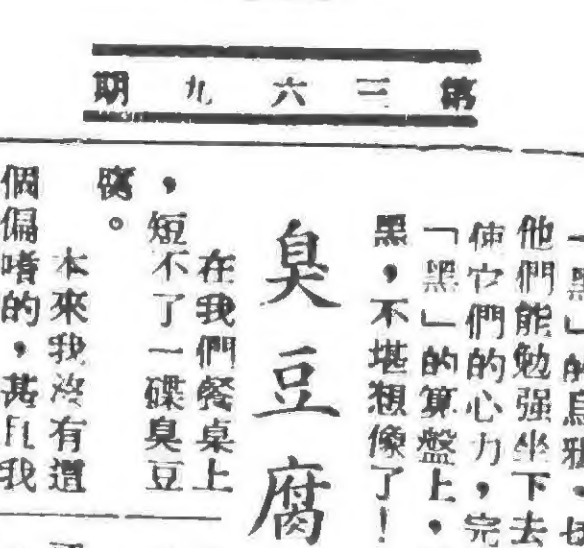 第三六九期
「黑」的烏雅，
他們能勉强坐下去
使它們的心力，完
「黑」的算盤上，
黑，不堪想像了！
臭豆腐
在我們餐桌上
，短不了一碟臭豆
腐。
本來我沒有這
個偏嗜的，甚且我